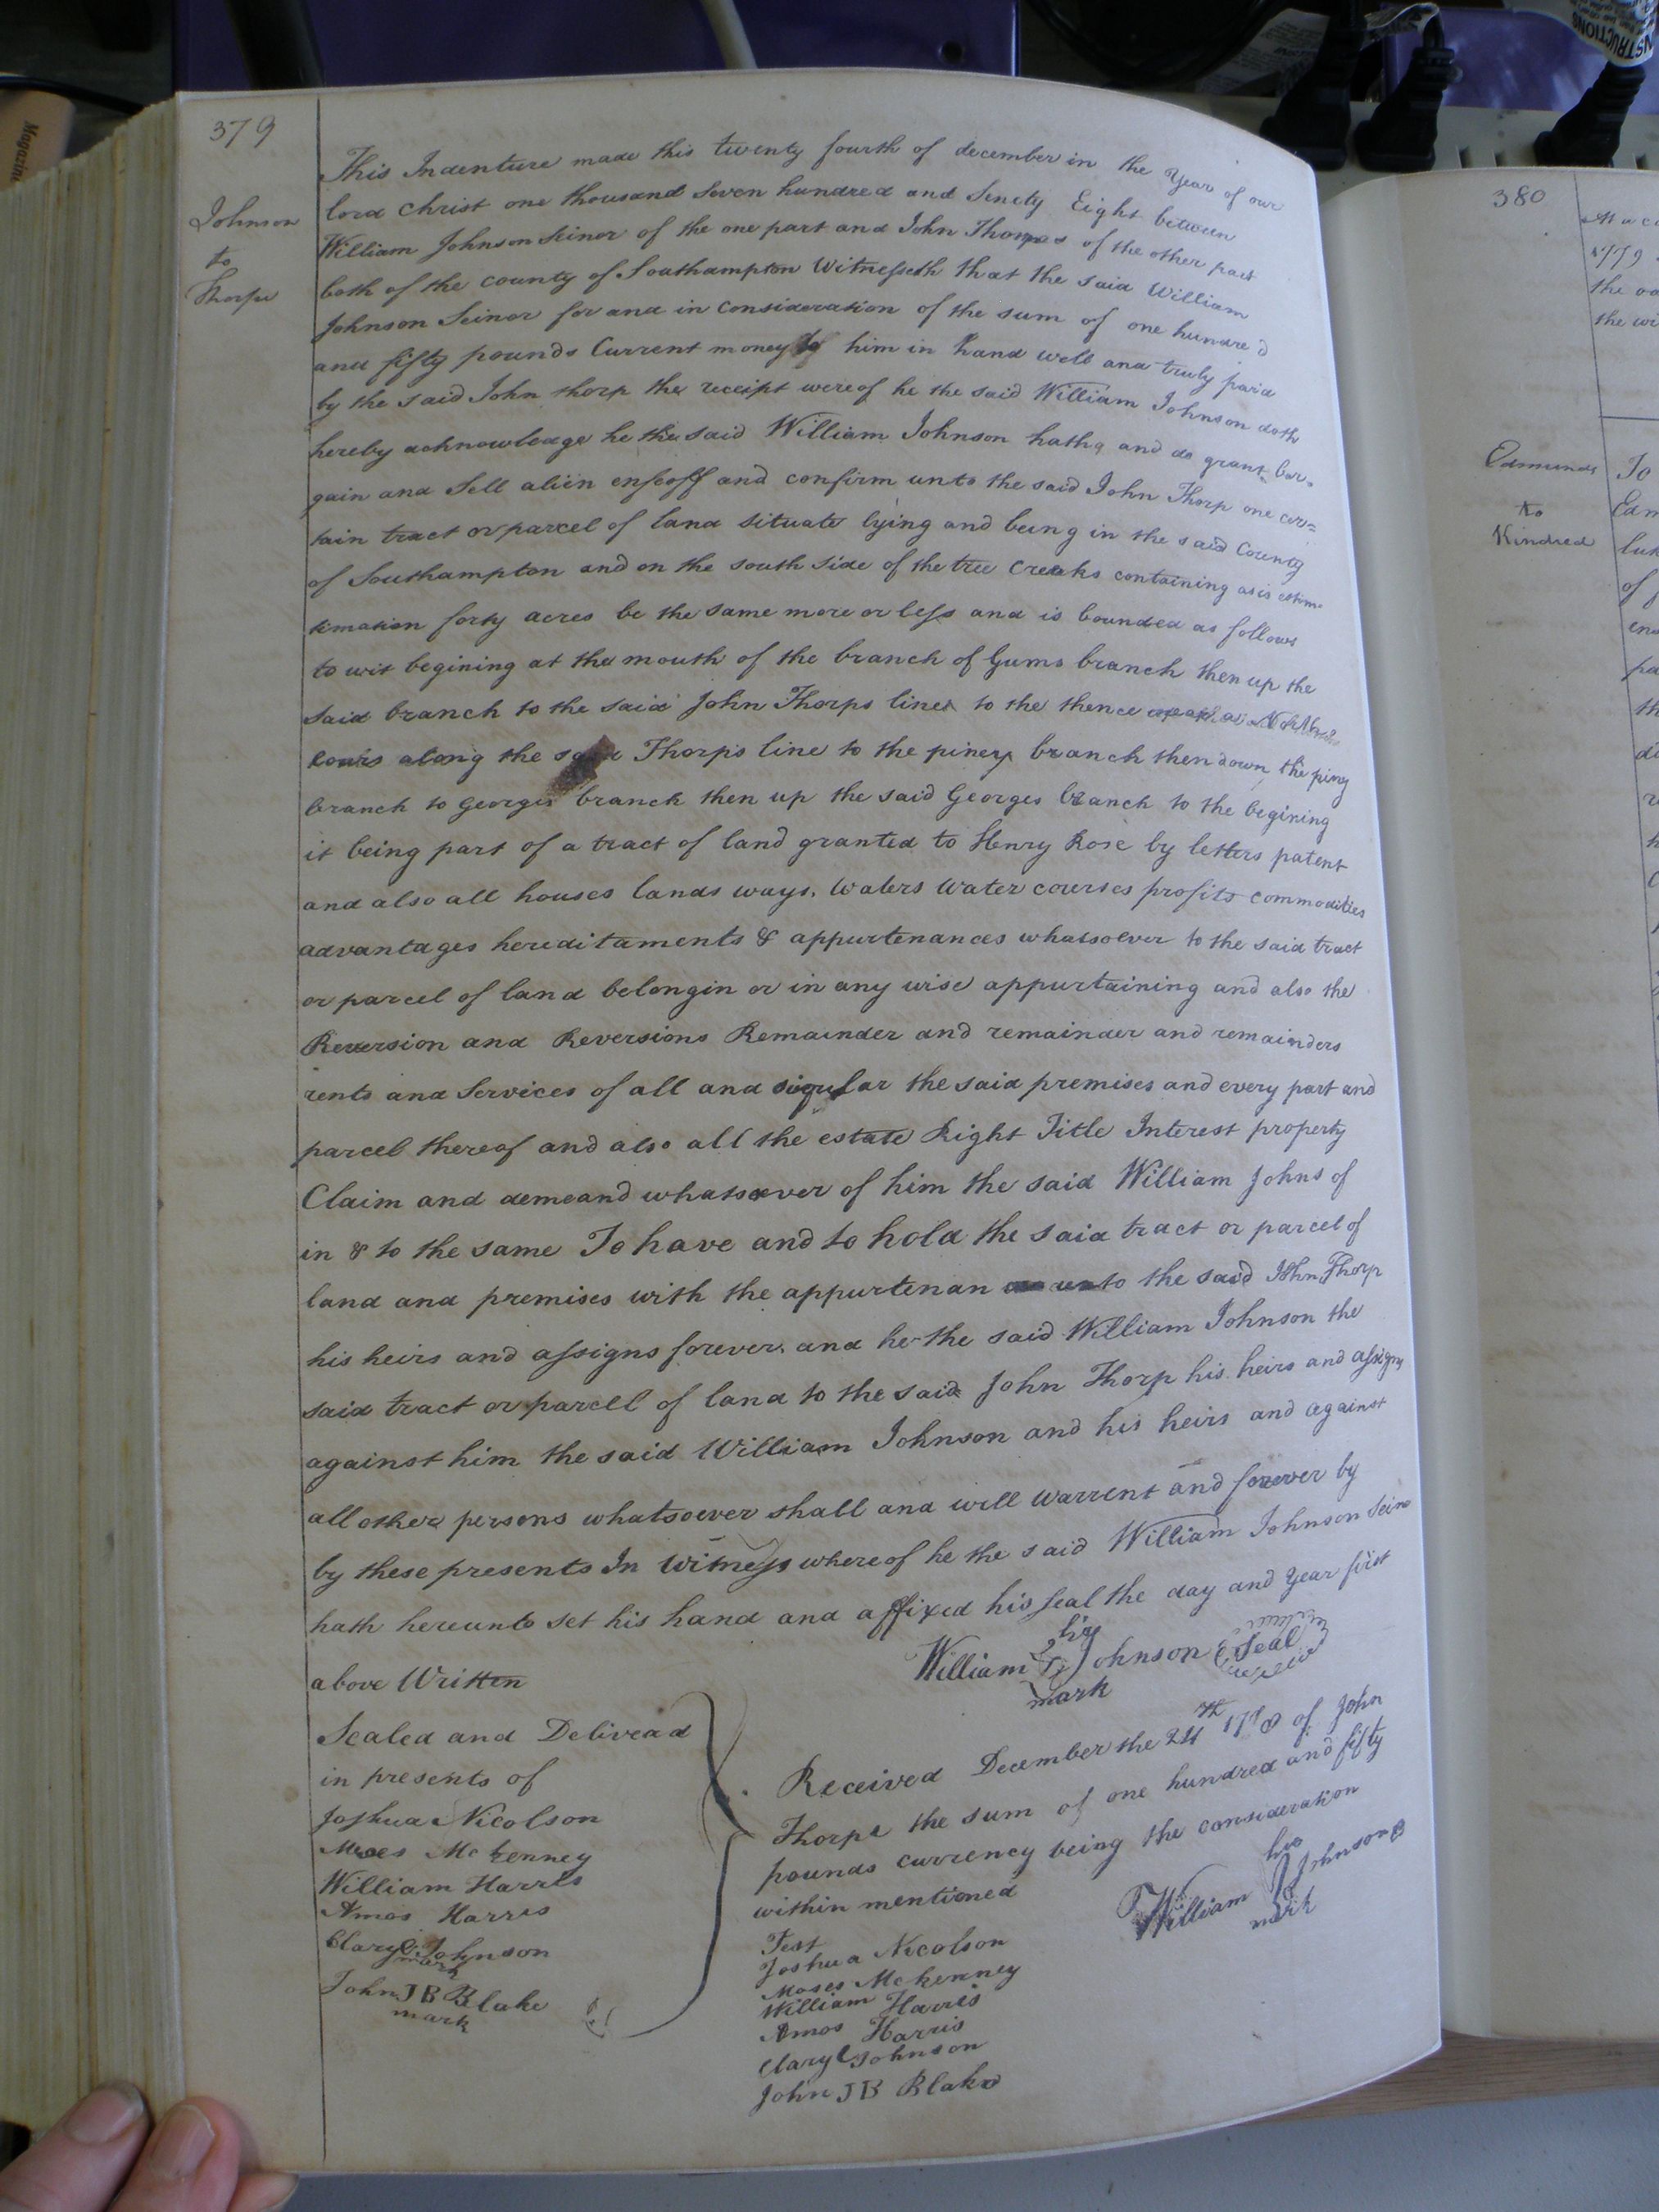 379
Johnson
to
Thorpe
This Indenture made this twenty fourth of december in the Year of our
lord Christ one thousand Seven hundred and Ninety Eight between
William Johnson Seinor of the one part and John Thorpes of the other part
both of the county of Southampton Witnesseth that the said William
Johnson Seinor for and in consideration of the sum of one hundred
and fifty pounds Current money to him in hand well and truly paid
by the said John thorp the receipt wereof he the said William Johnson doth
hereby acknowledge he the said William Johnson hath and do grant bar-
gain and Sell alien enfeoff and confirm unto the said John Thorp one cer=
tain tract or parcel of land situate lying and being in the said County
of Southampton and on the south side of the tree Creeks containing as is estim
timation forty acres be the same more or less and is bounded as follows
to wit begining at the mouth of the branch of Gums branch then up the
said branch to the said John Thorps lines to the thence
cours along the said Thorps line to the piney branch then down the piny
branch to Georges branch then up the said Georges branch to the begining
it being part of a tract of land granted to Henry Rose by letters patent
and also all houses lands ways, waters water courses profits commodities
advantages hereditaments & appurtenances whatsoever to the said tract
or parcel of land belongin or in any wise appurtaining and also the
Reversion and Reversions Remainder and remainder and remainders
rents and Services of all and sigular the said premises and every part and
parcel thereof and also all the estate Right Title Interest property
Claim and demeand whatsoever of him the said William Johns of
in & to the same To have and to hold the said tract or parcel of
land and premises with the appurtenan unto the said John Thorp
his heirs and assigns forever. and he the said William Johnson the
said tract or parcell of land to the said John Thorp his heirs and assigns
against him the said William Johnson and his heirs and against
all other persons whatsoever shall and will warrent and forever by
by these presents In witness whereof he the said William Johnson Seino
hath hereunto set his hand and affixed his seal the day and year first
above Written
William his Johnson Seal
mark
Sealed and Delivead
in presents of
Joshua Nicolson
Moses McKenney
William Harris
Amos Harris
Clary C Johnson
mark
John JB Blake
mark
Received December the 24th 1798 of John
Thorpe the sum of one hundred and fifty
pounds currency being the consideration
within mentioned
his
William Johnson
mark
Test
Joshua Nicolson
Moses McKenney
William Harris
Amos Harris
Clary C Johnson
John JB Blake
380
1779
the
the
Edmunds
to
Kindred
To
of
INSTRUCTIONS